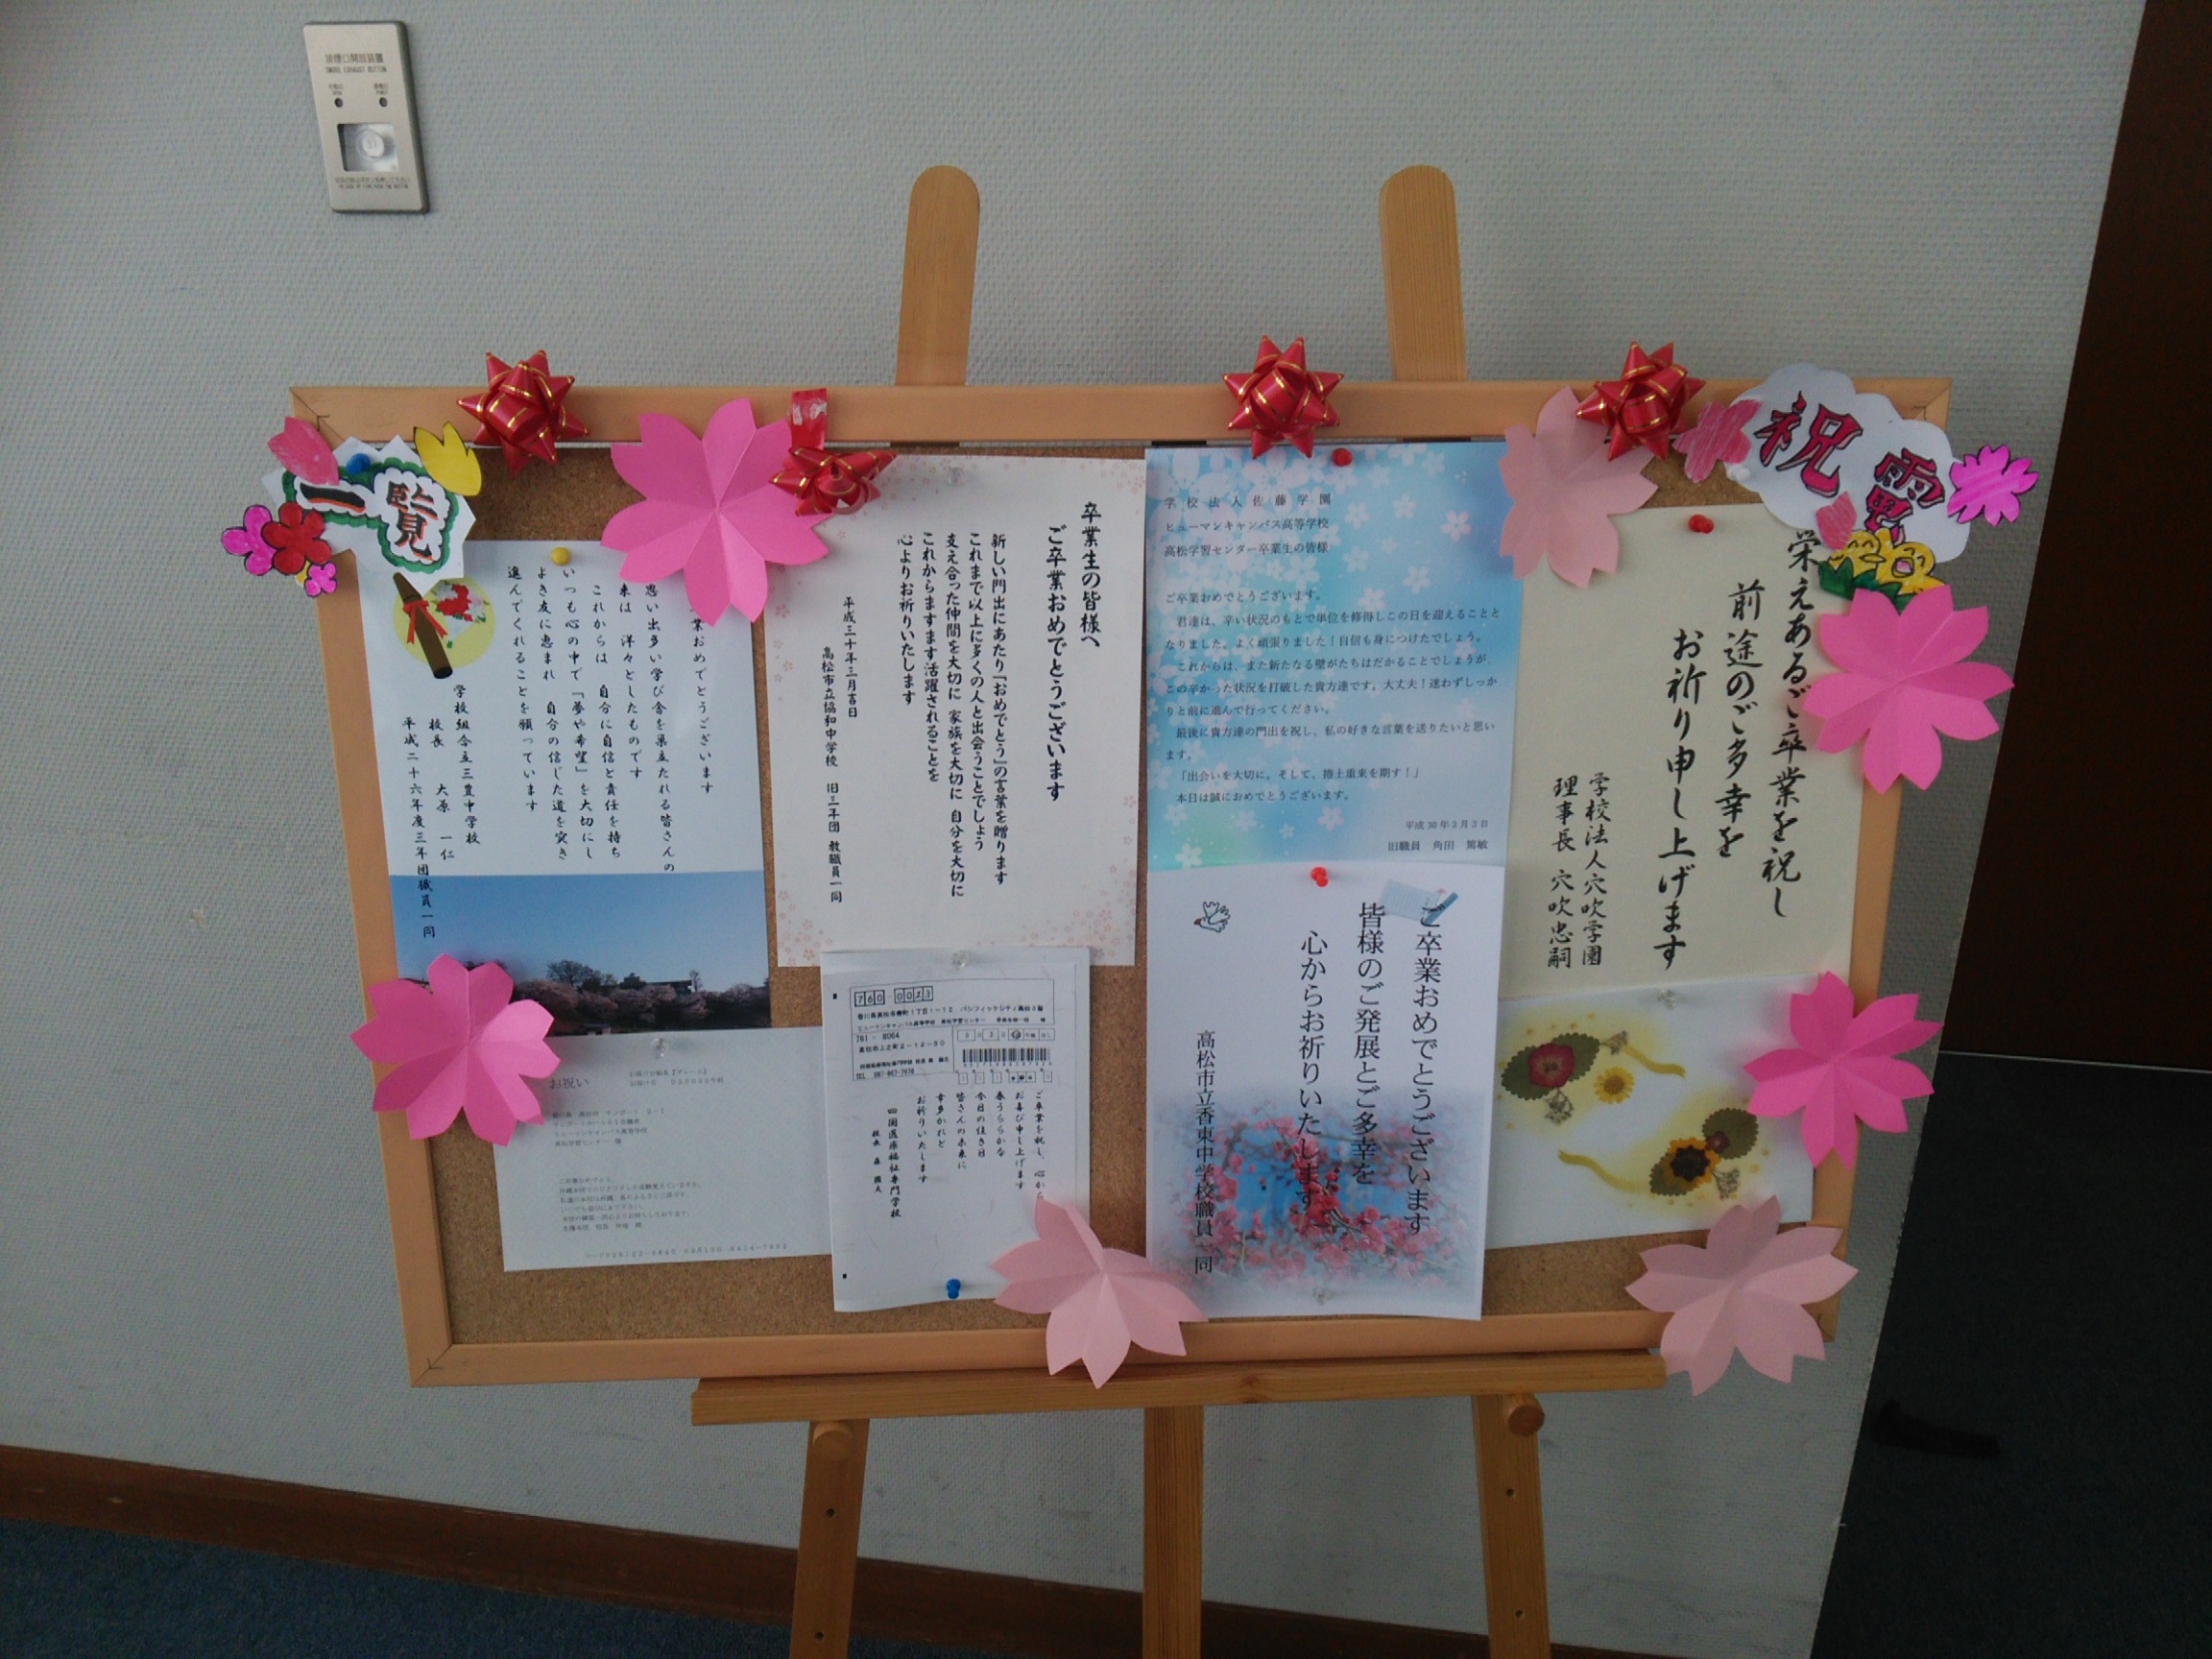 排煙口開放装置
SMOKE EXHAUST BUTTON
祝電
一覧
栄えあるご卒業を祝し
前途のご多幸を
お祈り申し上げます
学校法人穴吹学園
理事長 穴吹忠嗣
学校法人佐藤学園
ヒューマンキャンパス高等学校
高松学習センター卒業生の皆様
ご卒業おめでとうございます。
君達は、辛い状況のもとで単位を修得しこの日を迎えることと
なりました。よく頑張りました!自信も身につけたでしょう。
これからは、また新たなる壁がたちはだかることでしょうが、
この辛かった状況を打破した貴方達です。大丈夫!迷わずしっか
りと前に進んで行ってください。
最後に貴方達の門出を祝し、私の好きな言葉を送りたいと思い
ます。
「出会いを大切に。そして、捲土重来を期す!」
本日は誠におめでとうございます。
平成30年3月3日
旧職員 角田 篤敏
ご卒業おめでとうございます
皆様のご発展とご多幸を
心からお祈りいたします
高松市立香東中学校職員一同
卒業生の皆様へ
ご卒業おめでとうございます
新しい門出にあたり「おめでとう」の言葉を贈ります
これまで以上に多くの人と出会うことでしょう
支え合った仲間を大切に 家族を大切に 自分を大切に
これからますます活躍されることを
心よりお祈りいたします
平成三十年三月吉日
高松市立協和中学校 旧三年団 教職員一同
760-0023
761-8064
高松市上之町2-12-30
TEL 087-867-7676
ご卒業を祝し、心から
お喜び申し上げます
春うららかな
今日の佳き日
皆さんの未来に
幸多かれと
お祈りいたします
四国医療福祉専門学校
業おめでとうございます
思い出多い学び舎を巣立たれる皆さんの
来は 洋々としたものです
これからは 自分に自信と責任を持ち
いつも心の中で「夢や希望」を大切にし
よき友に恵まれ 自分の信じた道を突き
進んでくれることを願っています
学校組合立三豊中学校
校長 大原 一仁
平成二十六年度三年団職員一同
お祝い